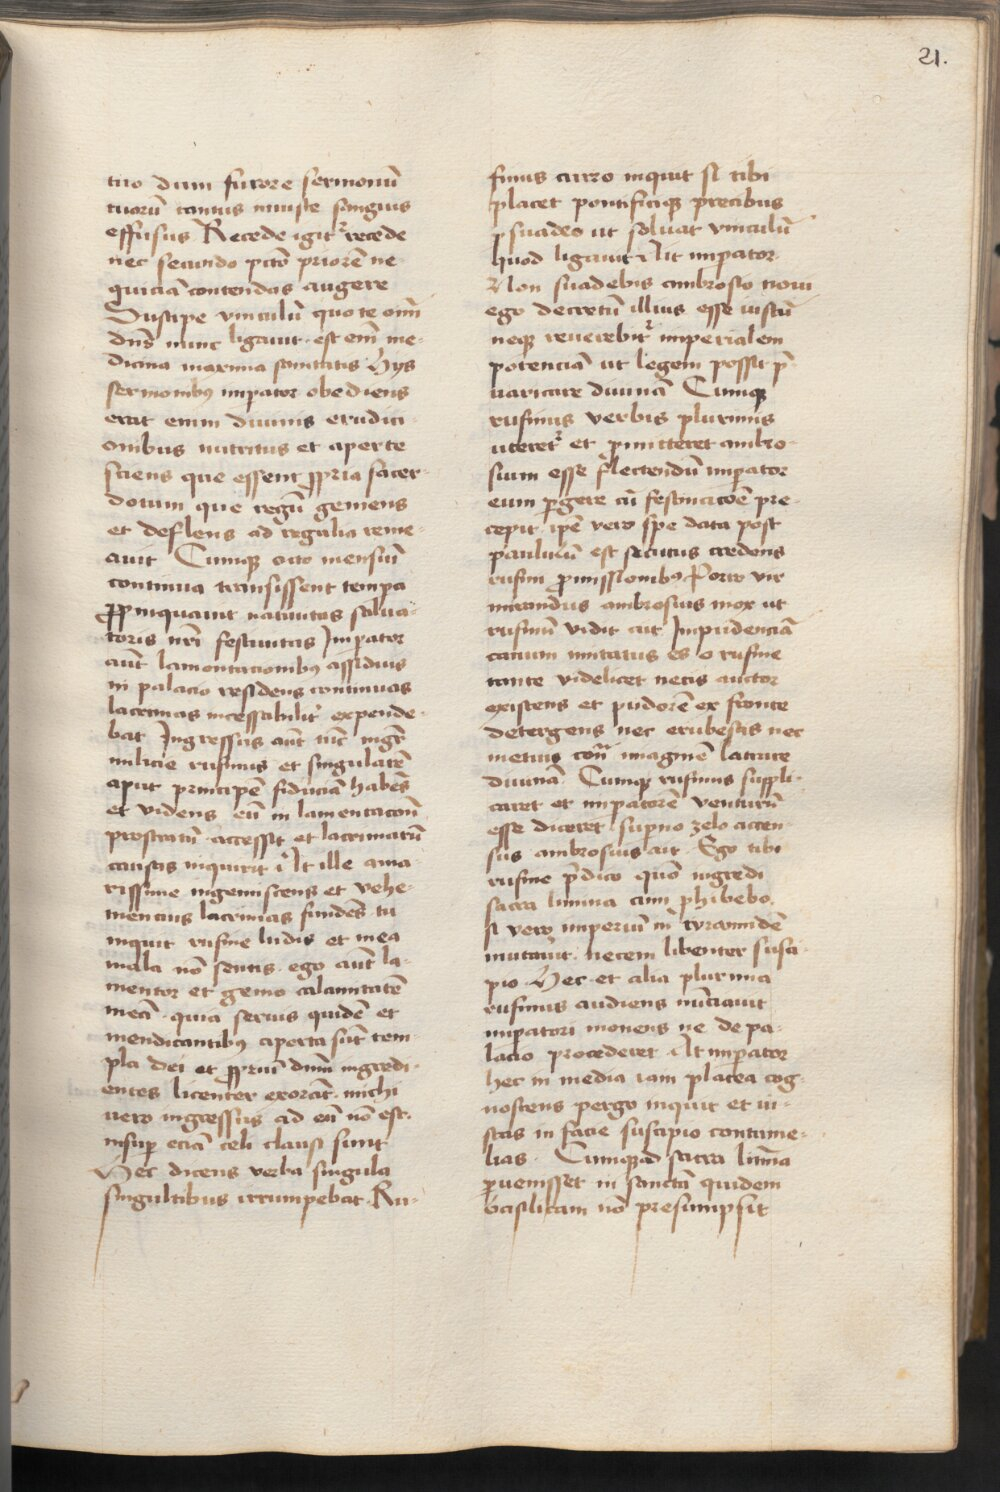 21.
tuo dum furore sermonū
tuorū tantus iniuste sanguis
effusus Recede igit᷑ recede
nec secundo pctō priorē ne
quiciā contendas augere
Suscipe vinculū quo te om̄
dn̄s nunc ligauit · est em̄ me-
dicina maxima sanitatis Hys
sermonibꝯ imperator obediens
erat enim diuinis erudici
onibus nutritus et aperte
sciens que essent ꝓpria sacer-
dotum que regū gemens
et deflens ad regalia reme-
auit Cumqꝫ octo mensiū
continua transissent tempa
ꝓpinquauit natiuitas salua-
toris nr̄i festiuitas Imperator
aūt lamentacionibꝯ assiduis
in palacio residens continuas
lacrimas incessabilit᷑ expende-
bat Ingressus aūt tūc mgr̄
milicie rufinus et singularē
aput principē fiduciā habēs
et videns eū in lamentacōn̄
prostratū · accessit et lacrimarū
causas inquirit At ille ama-
rissime ingemiscens et vehe-
mencius lacrimas fundēs · tu
inquit rufine ludis et mea
mala nō sentis · ego aūt la-
mentor et gemo calamitatē
meā · quia seruis quidē et
mendicantibꝯ aperta sūt tem
pla dei et ꝓpriū dnm̄ ingredi-
entes licenter exorāt · michi
vero ingressus ad eū nō est ·
insuꝑ eciā celi clausi sunt
Hec dicens verba singula
singultibus irrumpebat Ru-
finus curro inquit si tibi
placet pontificiqꝫ precibus
ꝑsuadeo ut soluat vinculū
quod ligauit Ait imperator
Non suadebis ambrosio noui
ego decretū illius esse iustū
neqꝫ reuerebit᷑ imperialem
potenciā ut legem possit p̄
uaricare diuinā Cumqꝫ
rufinus verbis plurimis
uteret᷑ et ꝓmitteret ambro-
sium esse flectendū imperator
eum ꝑgere cū festinacōe pre-
cepit ipē vero spe data post
paululū est secutus credens
rufini ꝓmissionibꝯ Porro vir
mirandus ambrosius mox ut
rufinū vidit ait Impudenciā
canum imitatus es o rufine
tante videlicet necis auctor
existens et pudorē ex fronte
detergens nec erubescis nec
metuis con̄ imaginē latrare
diuinā Cumqꝫ rufinus suppli-
caret et imperatorē venturū
esse diceret supno zelo accen-
sus ambrosius ait · Ego tibi
rufine p̄dico quō ingredi
sacra limina eum ꝓhibebo
si vero imperiū in tyrannidē
mutauit · necem libenter susci
pio Hec et alia plurima
rufinus audiens nūciauit
imperatori monens ne de pa-
lacio procederet At imperator
hec in media iam platea cog-
noscens pergo inquit et iu-
stas in facie suscipio contume-
lias · Cumqꝫ ad sacra limīa
ꝑuenisset in sanctā quidem
basilicam nō presumpsit